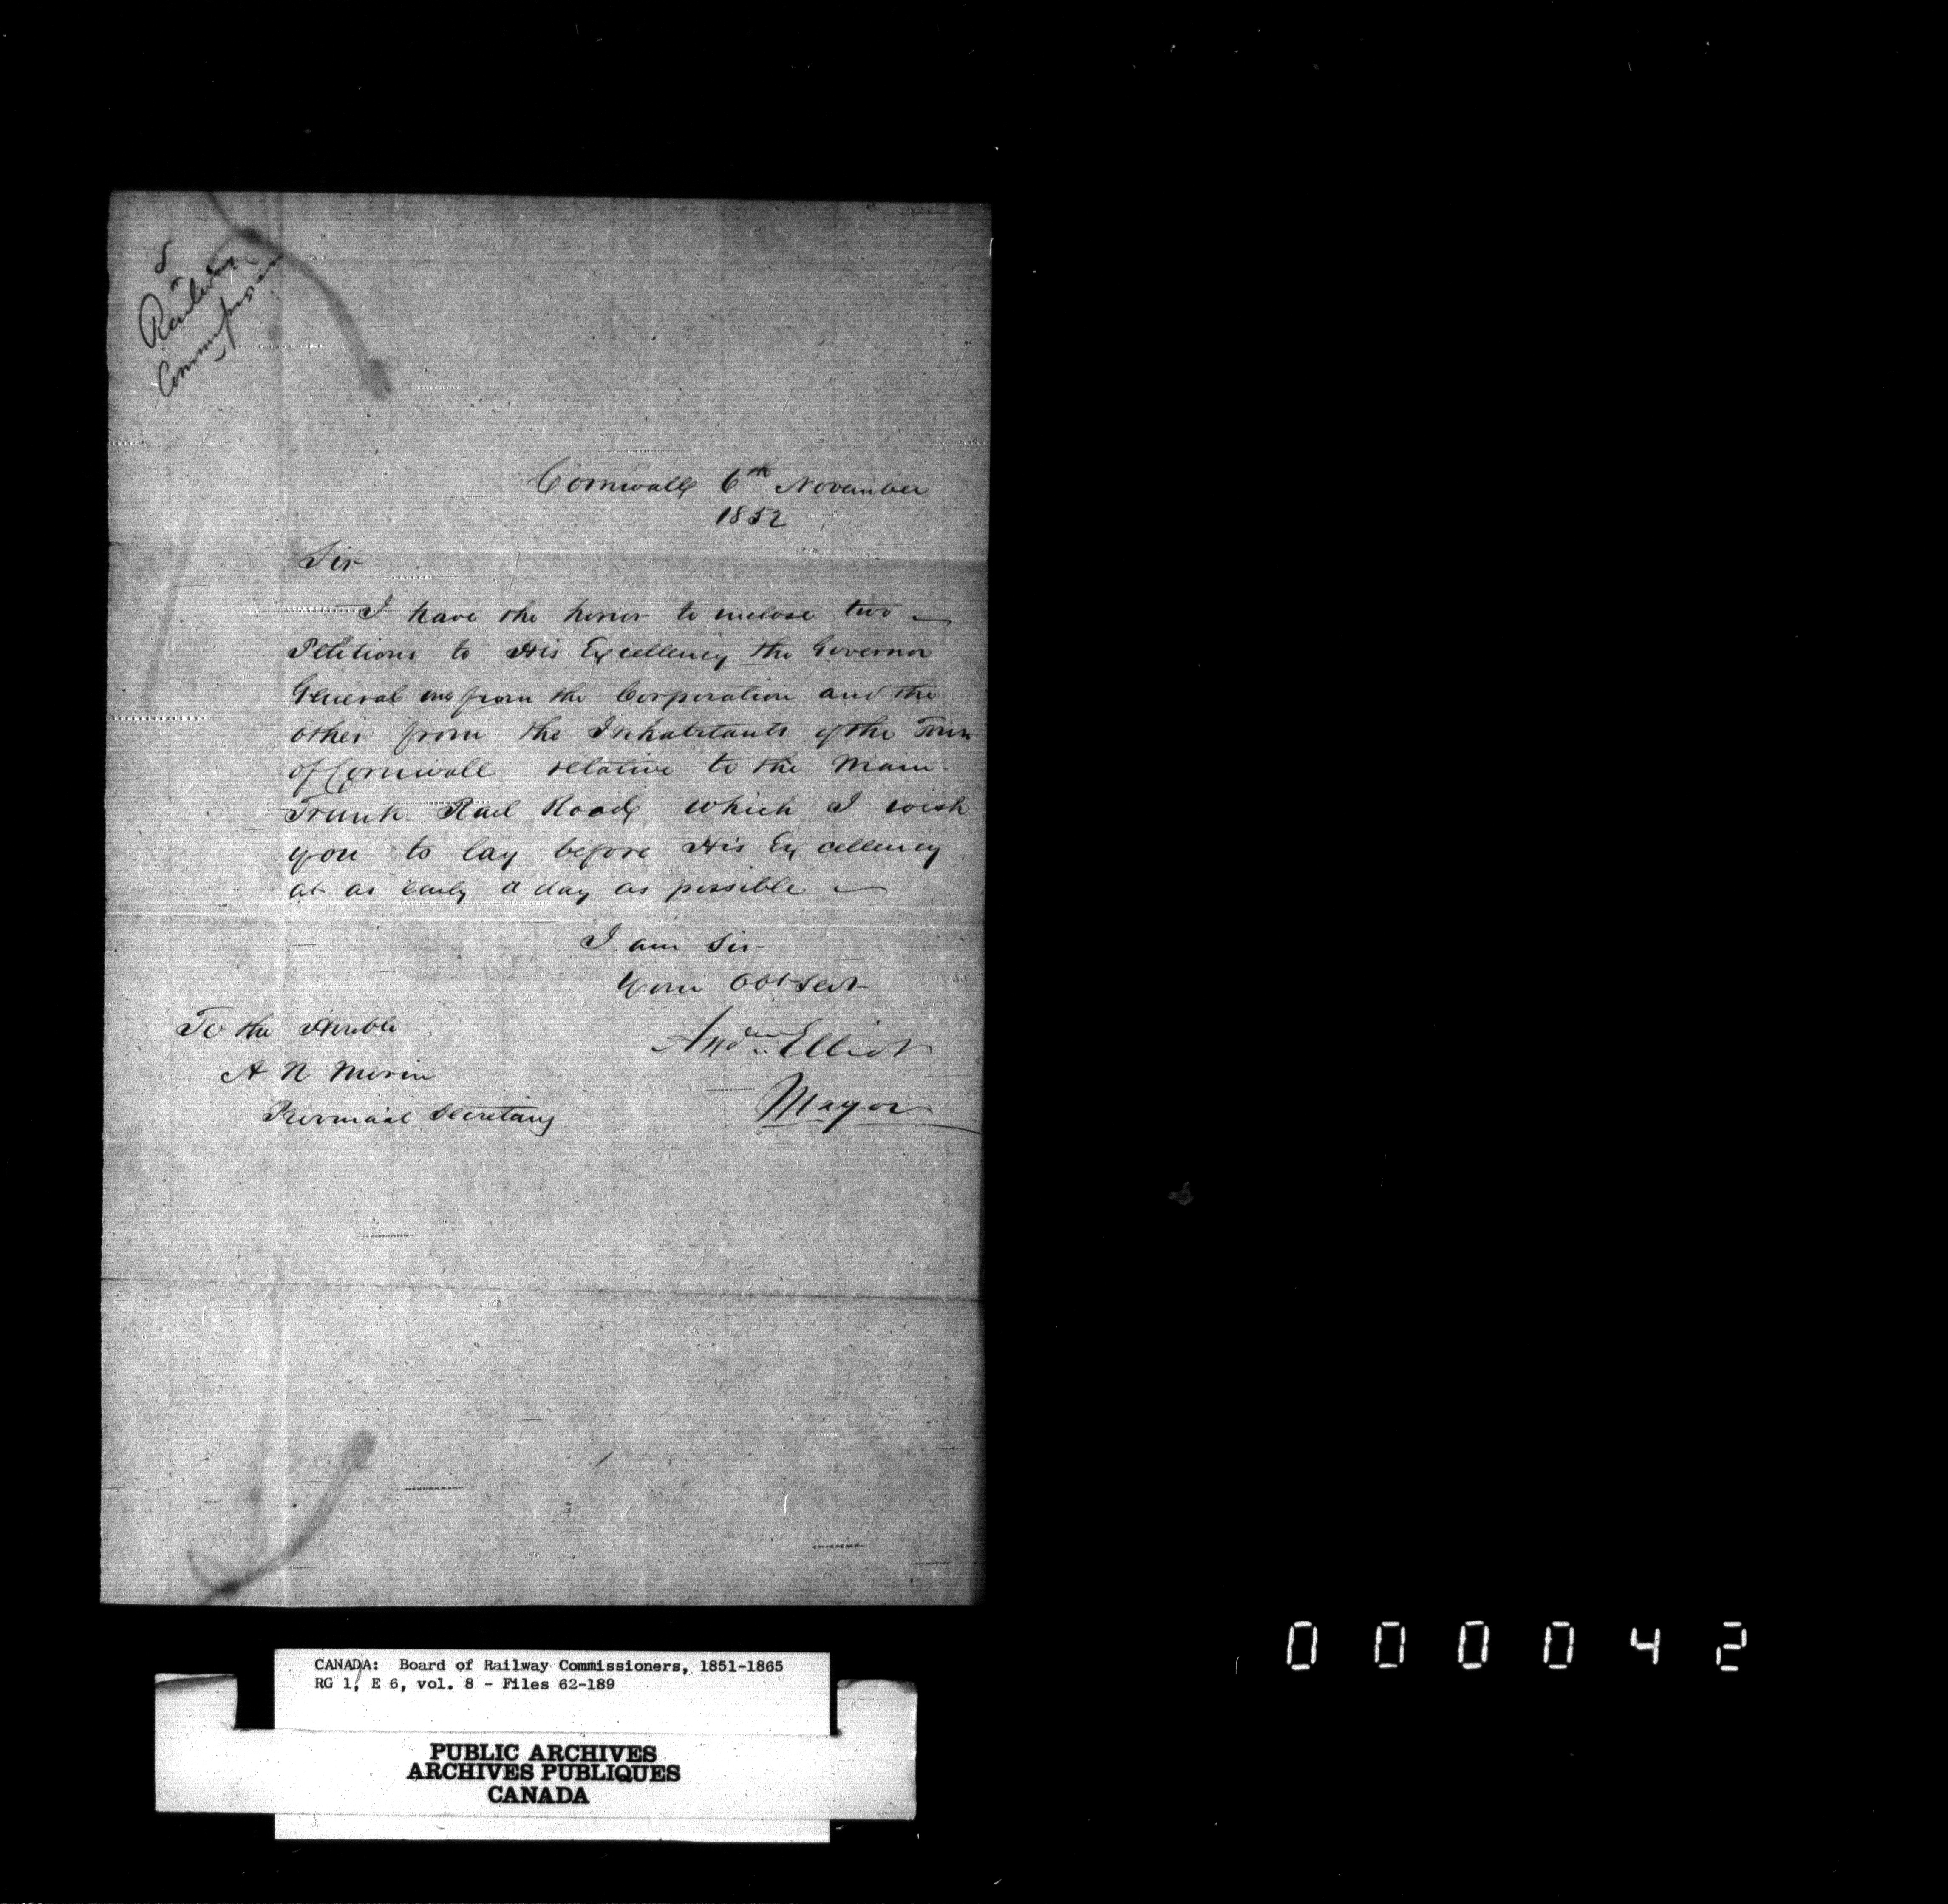 Railway
Commission
Cornwall 6th November
1852
Sir
I have the honor to inclose two
Petitions to His Excellency the Governor
General one from the Corporation and the
other from the Inhabitants of the Town
of Cornwall relative to the Main
Trunk Rail Road which I wish
you to lay before His Excellency
at as early a day as possible
I am Sir
Your Obt Servt
Andw Elliot
Mayor
To the Honble
A N Morin
Provincial Secretary
CANADA: Board of Railway Commissioners, 1851-1865
RG 1, E 6, vol. 8 - Files 62-189
PUBLIC ARCHIVES
ARCHIVES PUBLIQUES
CANADA
000042